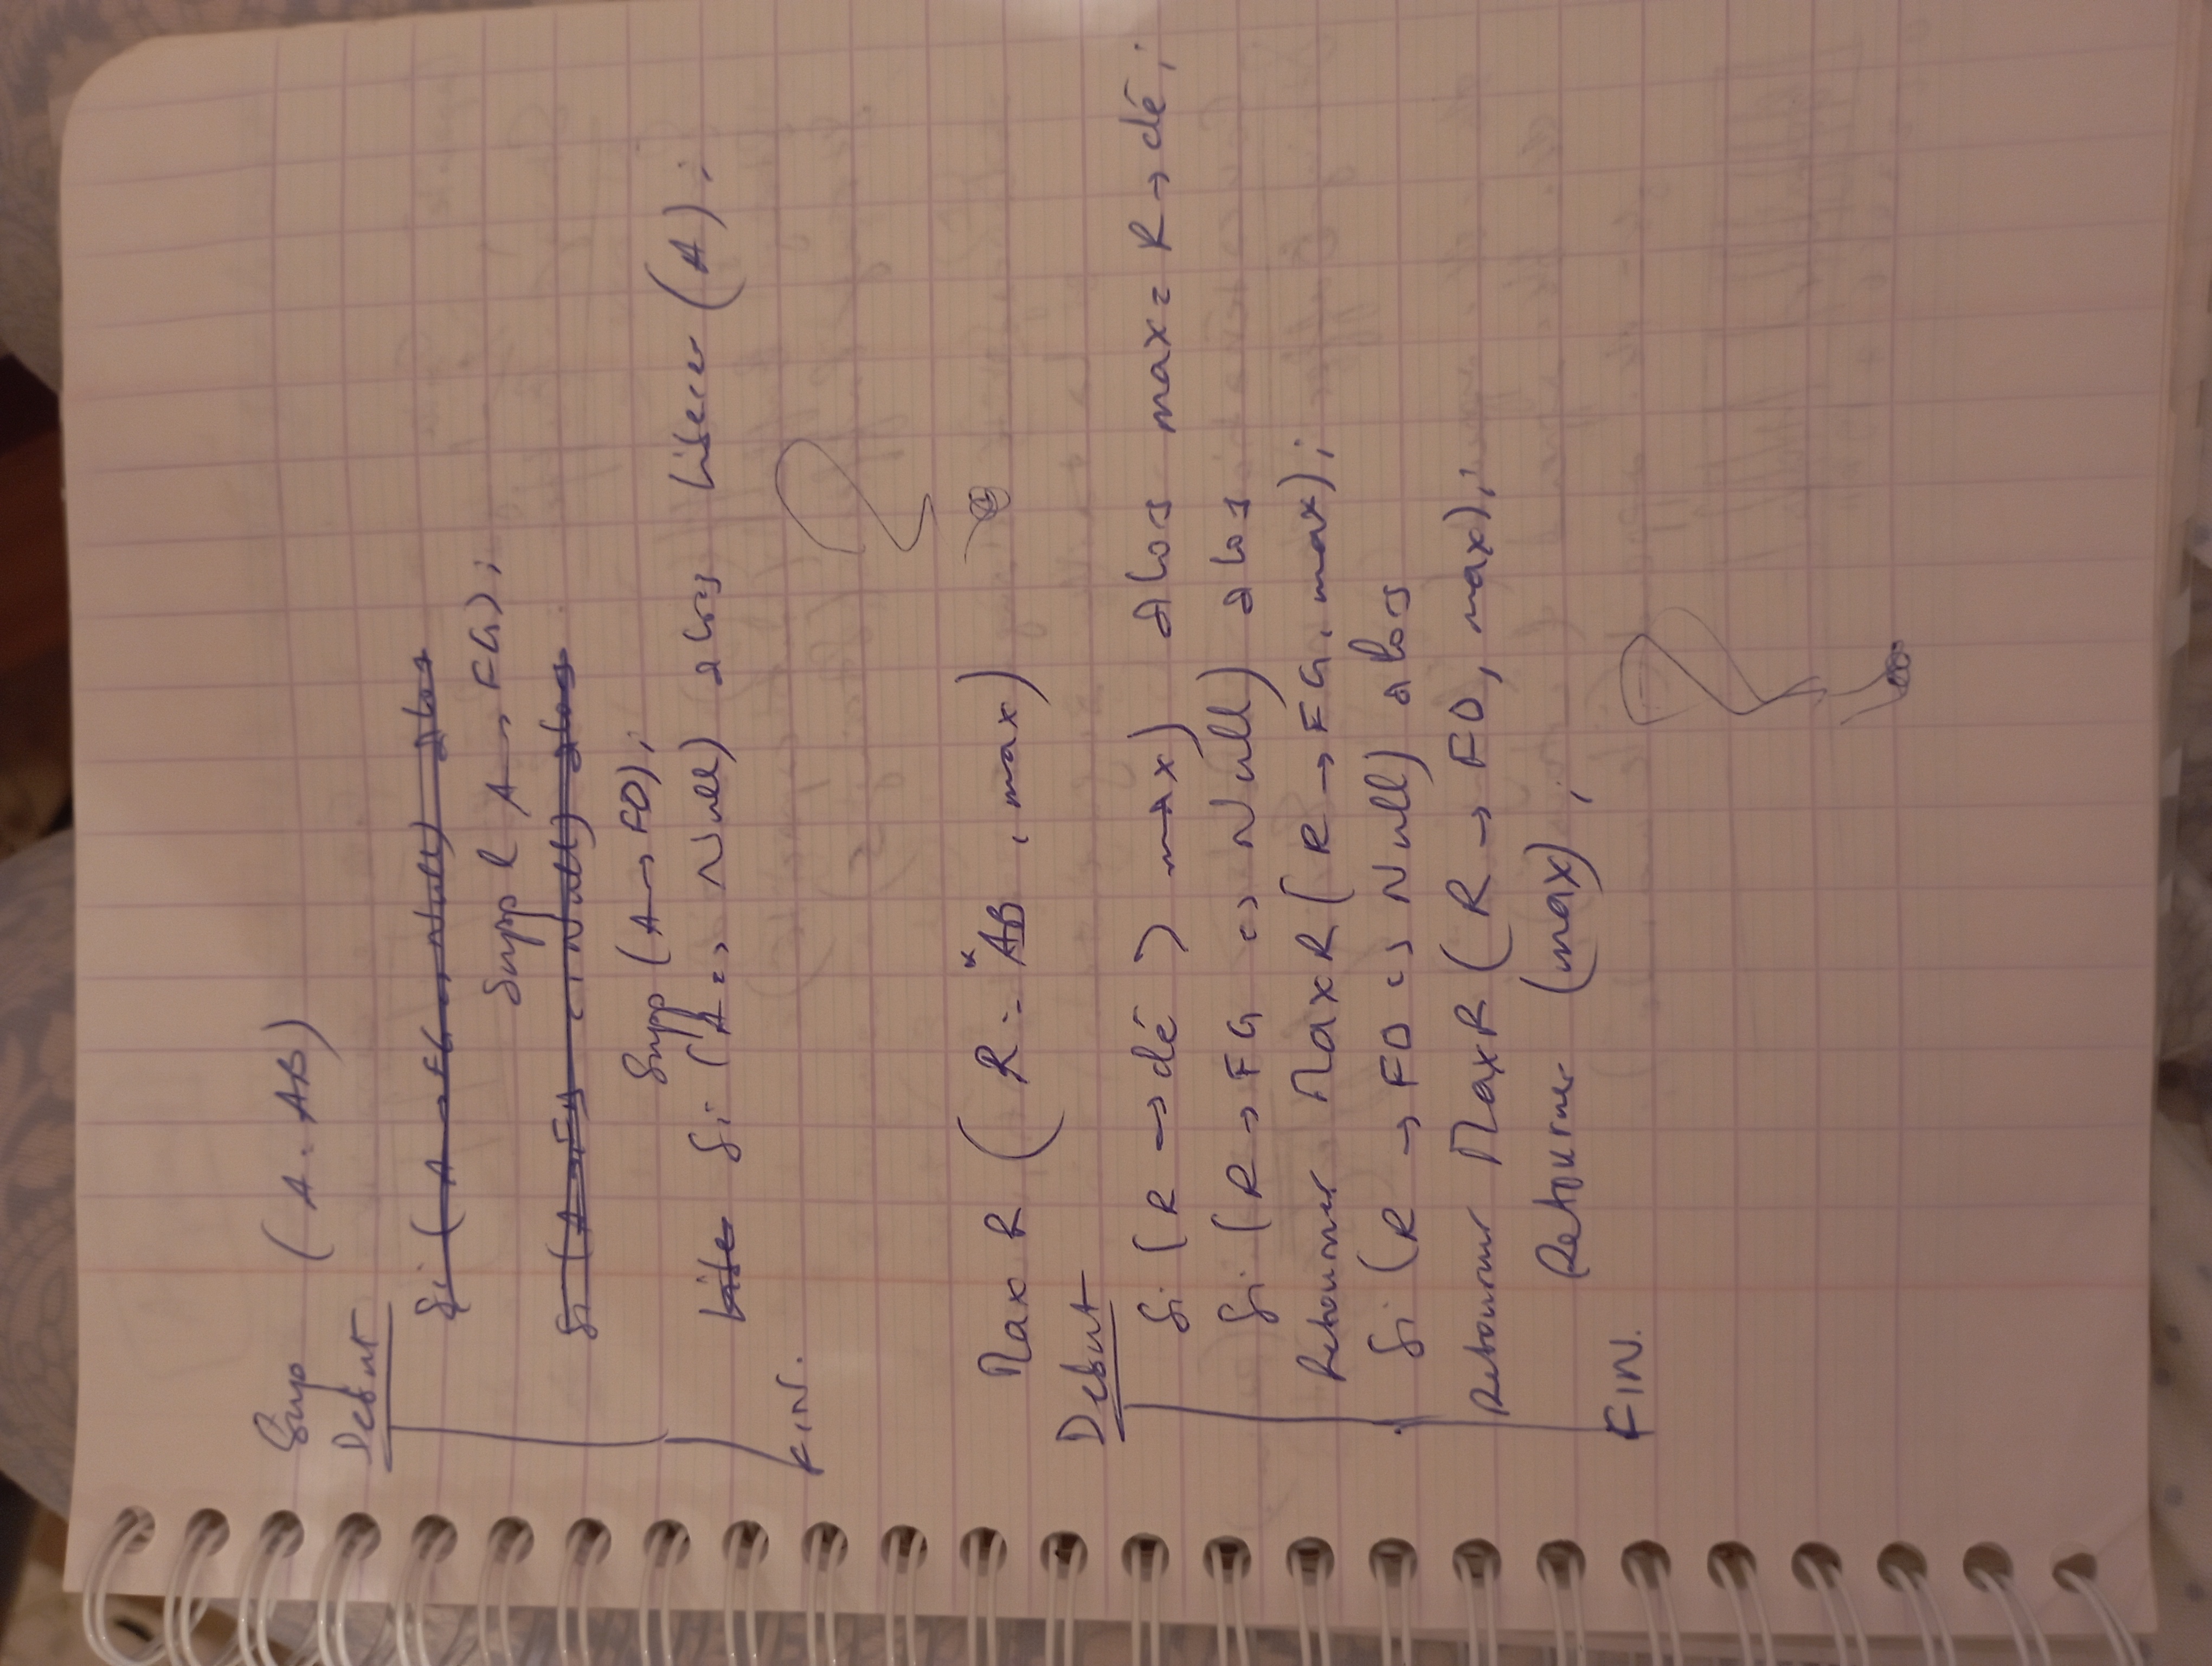 Sup ( A : AB )
Debut
Si ( A → FG <> Null) alos
Supp ( A → FG) ;
Si ( A → FD <> Null) alors
Supp ( A → FD) ;
Libe Si ( A <> Null) alors Liberer ( A ) ;
FIN.
Max R ( R : *AB , max )
Debut
Si ( R → clé > max ) alors max = R → clé ;
Si ( R → FG <> Null) alos
Retourner MaxR ( R → FG , max ) ;
Si ( R → FD <> Null) alors
Retourner MaxR ( R → FD , max ) ;
Retourner (max) ;
FIN.